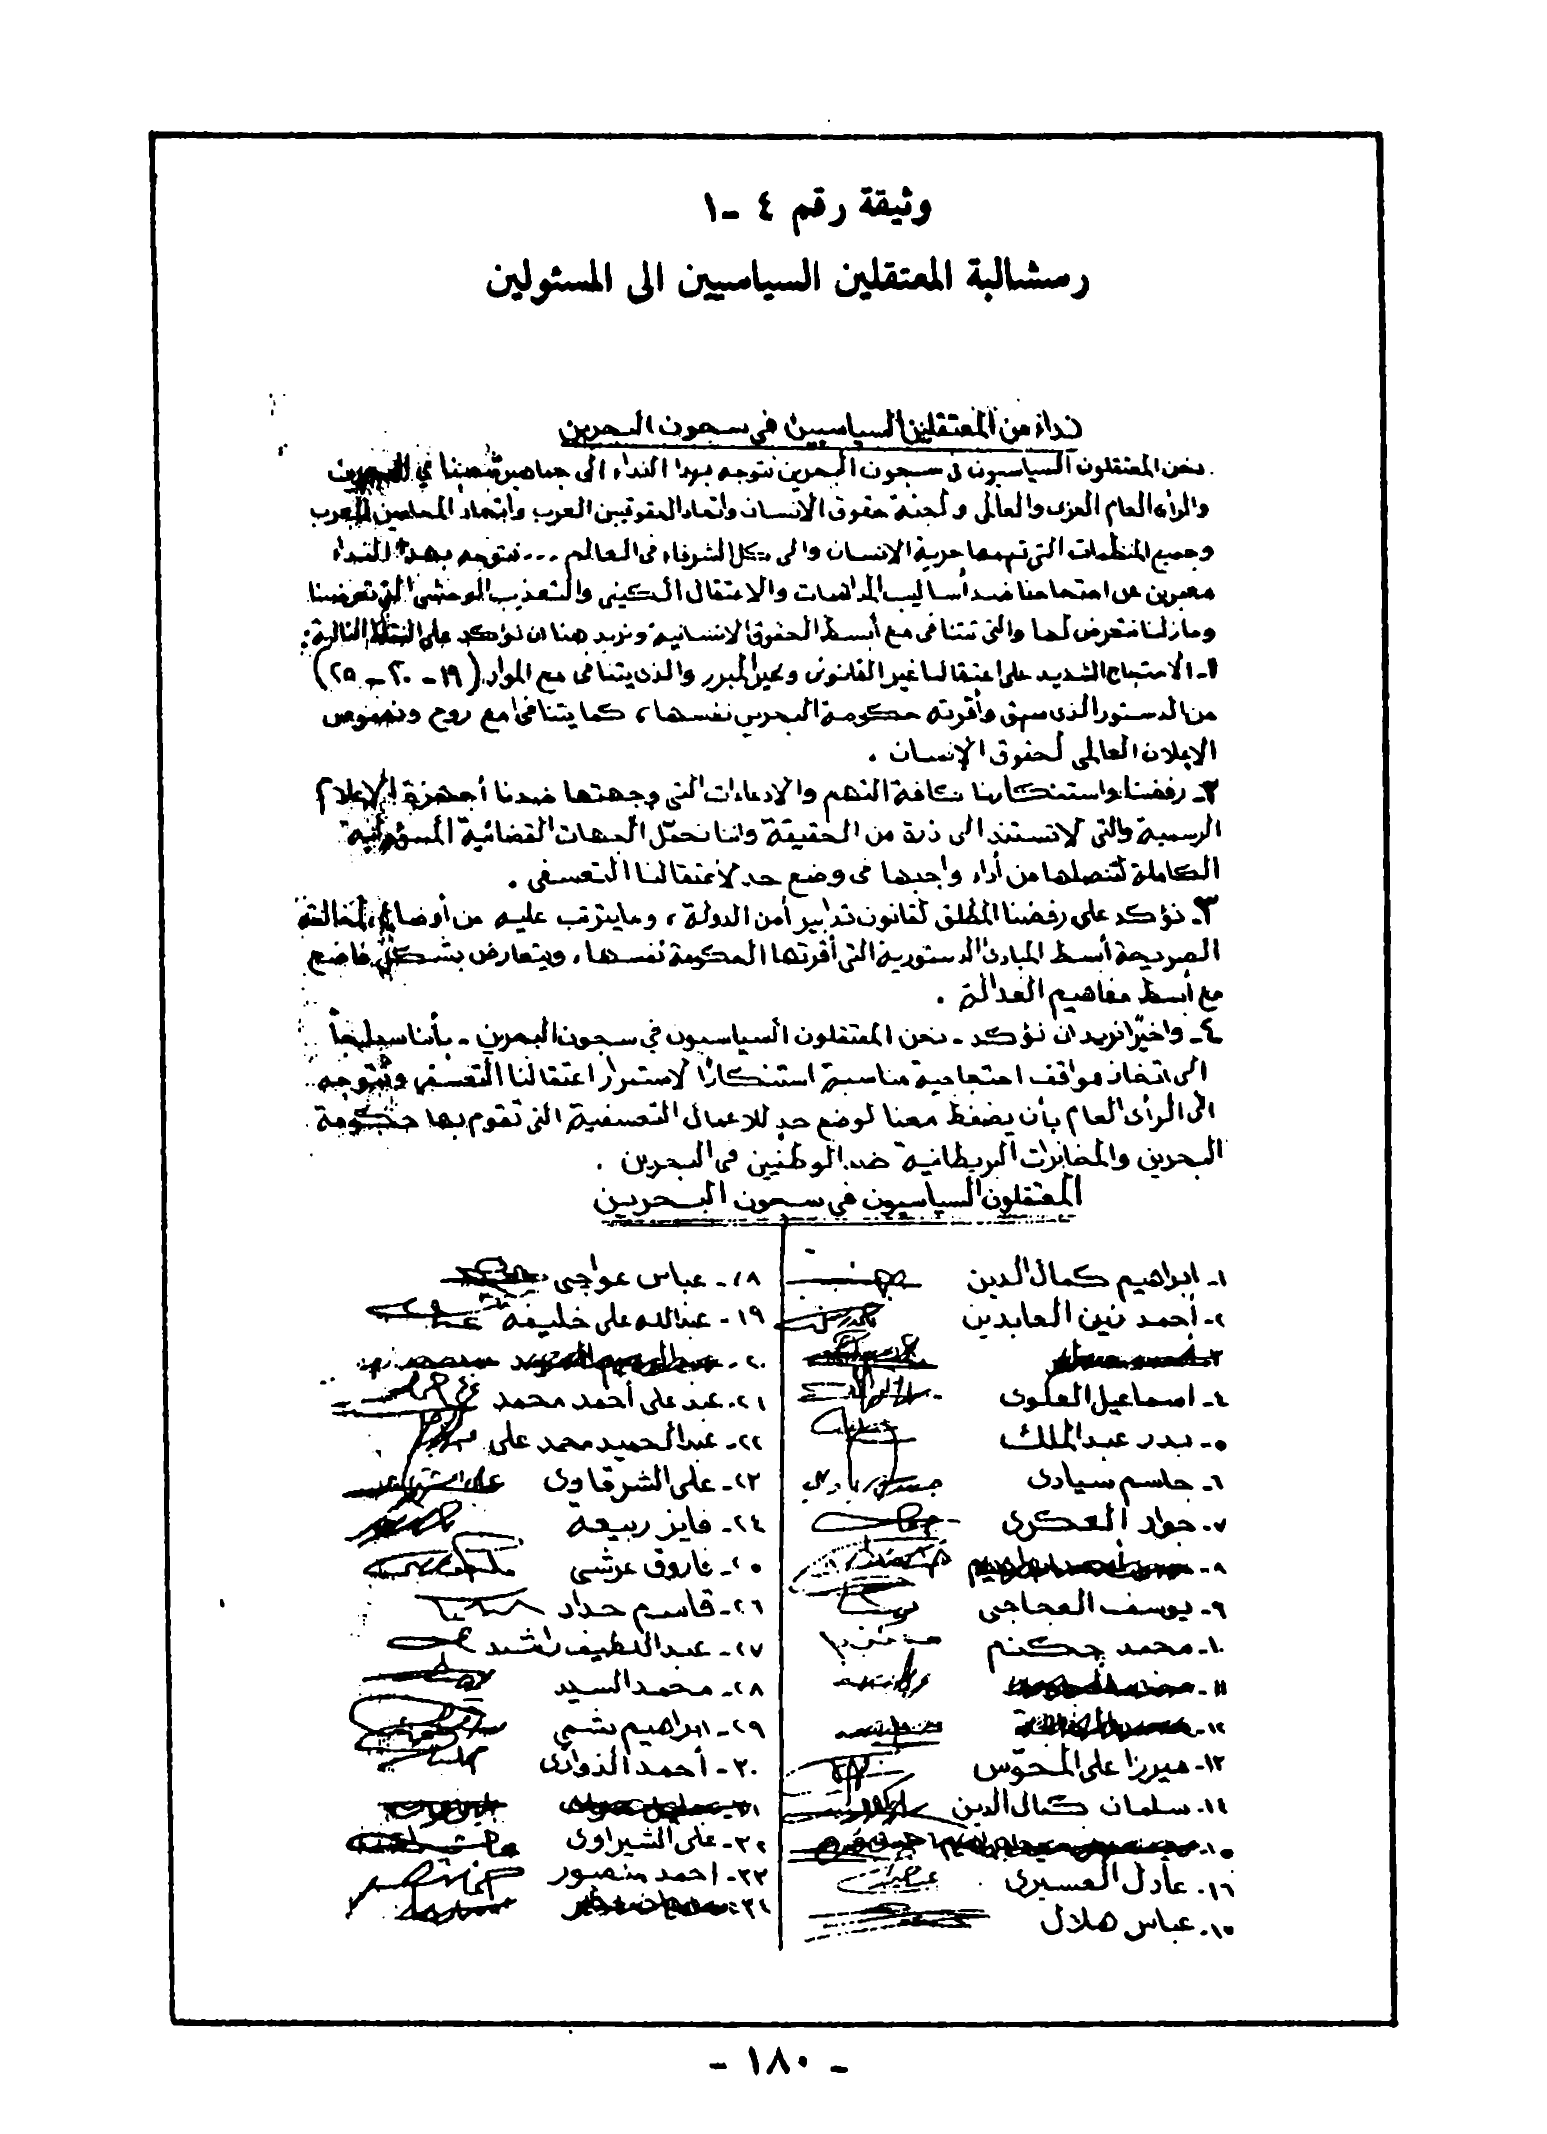 وثيقة رقم ٤ -١
رسشالبة المعتقلين السياسيين الى المسئولين
نداء من المعتقلين السياسيين في سجون البحرين
نحن المعتقلون السياسيون في سجون البحرين نتوجه بهذا النداء الى جماهير شعبنا في البحرين
والرأي العام العربي والعالمي ولجنة حقوق الانسان واتحاد الحقوقيين العرب واتحاد المحامين العرب
وجميع المنظمات التي تهمها حرية الانسان والى كل الشرفاء في العالم ... نتوجه بهذا النداء
معبرين عن احتجاجنا ضد أساليب المداهمات والاعتقال الكيفي والتعذيب الوحشي التي تعرضنا
ومازلنا نتعرض لها والتي تتنافى مع أبسط الحقوق الانسانية ونريد هنا ان نؤكد على النقاط التالية :
١- الاحتجاج الشديد على اعتقالنا غير القانوني وغير المبرر والذي يتنافى مع المواد (١٩ - ٢٠ - ٢٥)
من الدستور الذي سبق وأقرته حكومة البحرين نفسها، كما يتنافى مع روح ونصوص
الإعلان العالمي لحقوق الإنسان .
٢- رفضنا واستنكارنا لكافة التهم والادعاءات التي وجهتها ضدنا أجهزة الإعلام
الرسمية والتي لا تستند الى ذرة من الحقيقة واننا نحمّل الجهات القضائية المسؤولية
الكاملة لتنصلها من أداء واجبها في وضع حد لاعتقالنا التعسفي .
٣- نؤكد على رفضنا المطلق لقانون تدابير أمن الدولة، وما يترتب عليه من أوضاع، لمخالفته
الصريحة أبسط المبادئ الدستورية التي أقرتها الحكومة نفسها، ويتعارض بشكل فاضح
مع أبسط مفاهيم العدالة .
٤- واخيرًا نريد ان نؤكد - نحن المعتقلون السياسيون في سجون البحرين - بأننا سنلجأ
الى اتخاذ مواقف احتجاجية مناسبة استنكارًا لاستمرار اعتقالنا التعسفي ونتوجه
الى الرأي العام بأن يضغط معنا لوضع حد للاعمال التعسفية التي تقوم بها حكومة
البحرين والمخابرات البريطانية ضد الوطنيين في البحرين .
المعتقلون السياسيون في سجون البحرين
١- ابراهيم كمال الدين
٢- أحمد زين العابدين
٣-
٤- اسماعيل العلوي
٥- بدر عبد الملك
٦- جاسم سيادي
٧- جواد العكري
٨-
٩- يوسف العجاجي
١٠- محمد جكنم
١١-
١٢-
١٣- ميرزا علي المحوّس
١٤- سلمان كمال الدين
١٥-
١٦- عادل العسيري
١٥- عباس هلال
١٨- عباس عواجي
١٩- عبدالله علي خليفة
٢٠-
٢١- عبد علي أحمد محمد
٢٢- عبدالحميد محمد علي
٢٣- علي الشرقاوي
٢٤- فايز ربيعة
٢٥- فاروق عرشي
٢٦- قاسم حداد
٢٧- عبد اللطيف راشد
٢٨- محمد السيد
٢٩- ابراهيم بشمي
٣٠- أحمد الذوادي
٣١-
٣٢- علي الشيراوي
٣٣- احمد منصور
٣٤-
- ١٨٠ -